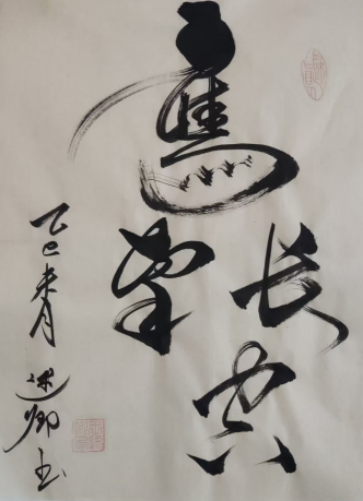 鹰击
长空
乙巳春月 述卿书